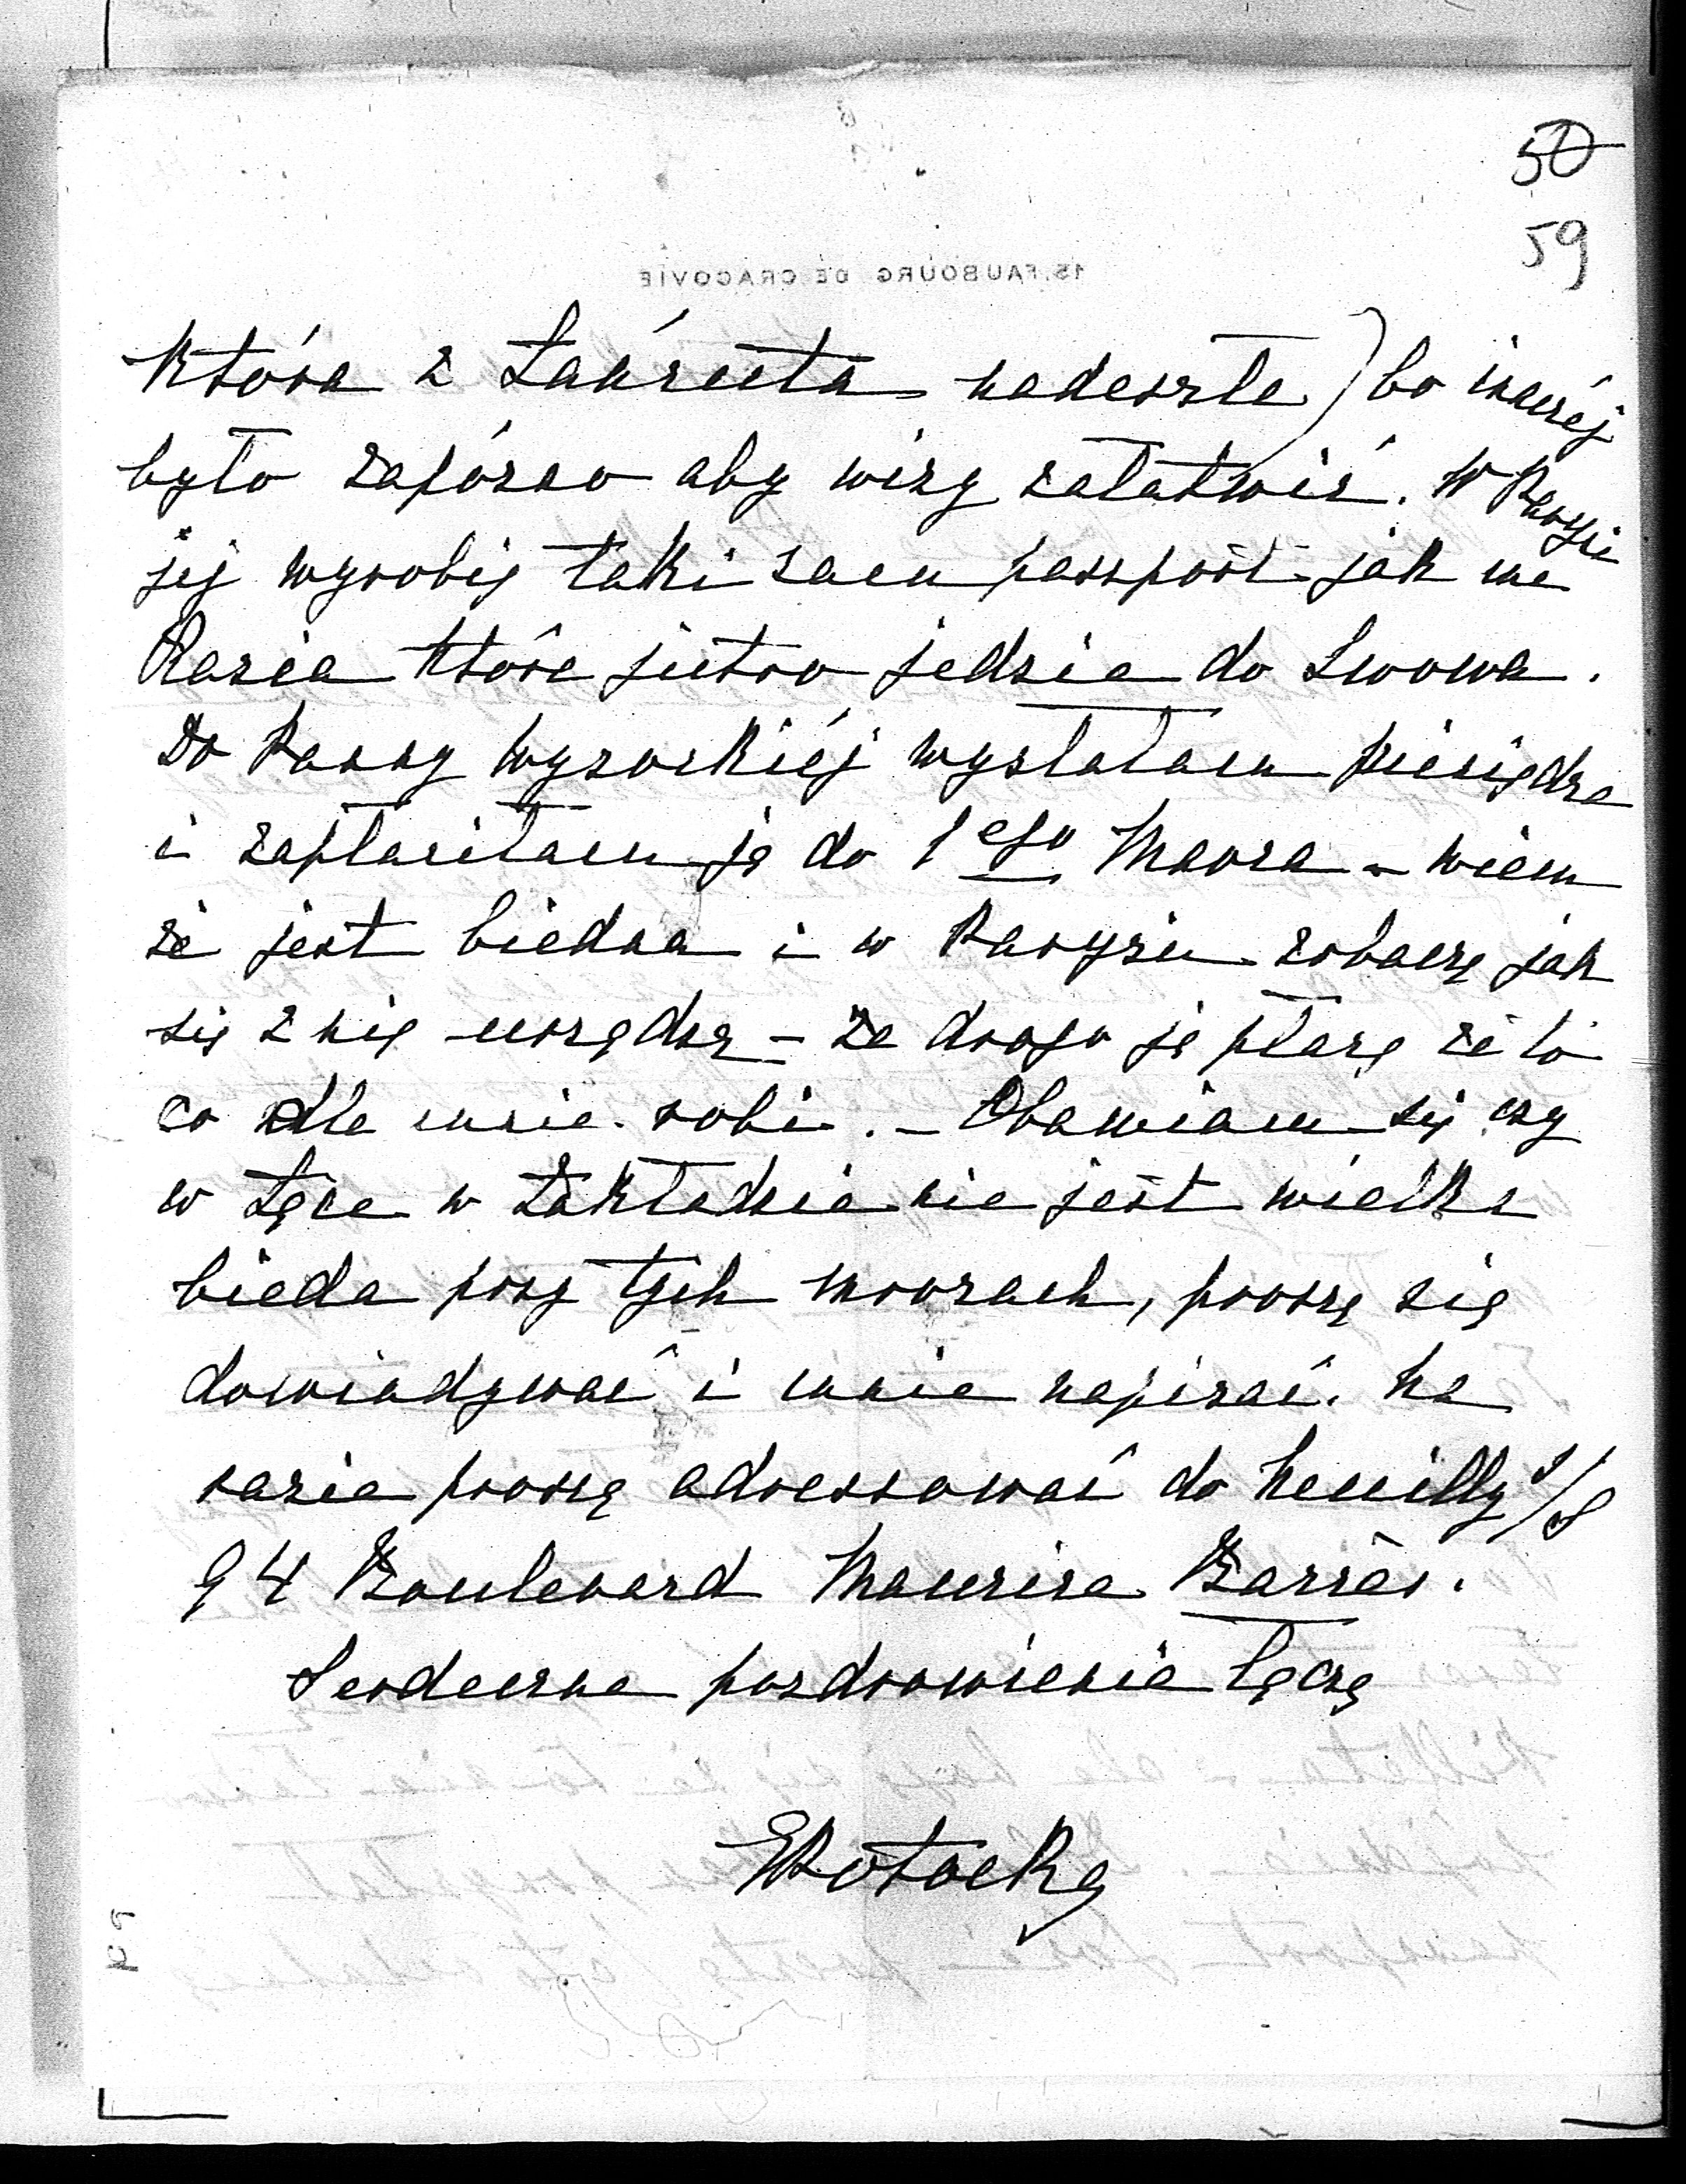 50
59
15, FAUBOURG DE CRACOVIE
która z Łańcuta nadeszła) bo inaczéj
było zapóźno aby wizy załatwić. W Paryżu
jej wyrobię taki sam passport jak ma
Kazia która jutro jedzie do Lwowa.
Do Panny Wysockiéj wysłałam pieniądze
i zapłaciłam ją do 1ego Marca – wiem
że jest biedna i w Paryżu zobaczę jak
się z nią urządzę – że drogo ją płacę za to
co dla mnie robi. – Obawiam się czy
w Łące w Zakładzie nie jest wielka
bieda przy tych mrozach, proszę się
dowiadywać i mnie napisać. Na
razie proszę adressować do Neuilly s/S
94 Boulevard Maurice Barrès.
Serdeczne pozdrowienia łączę
EPotocka